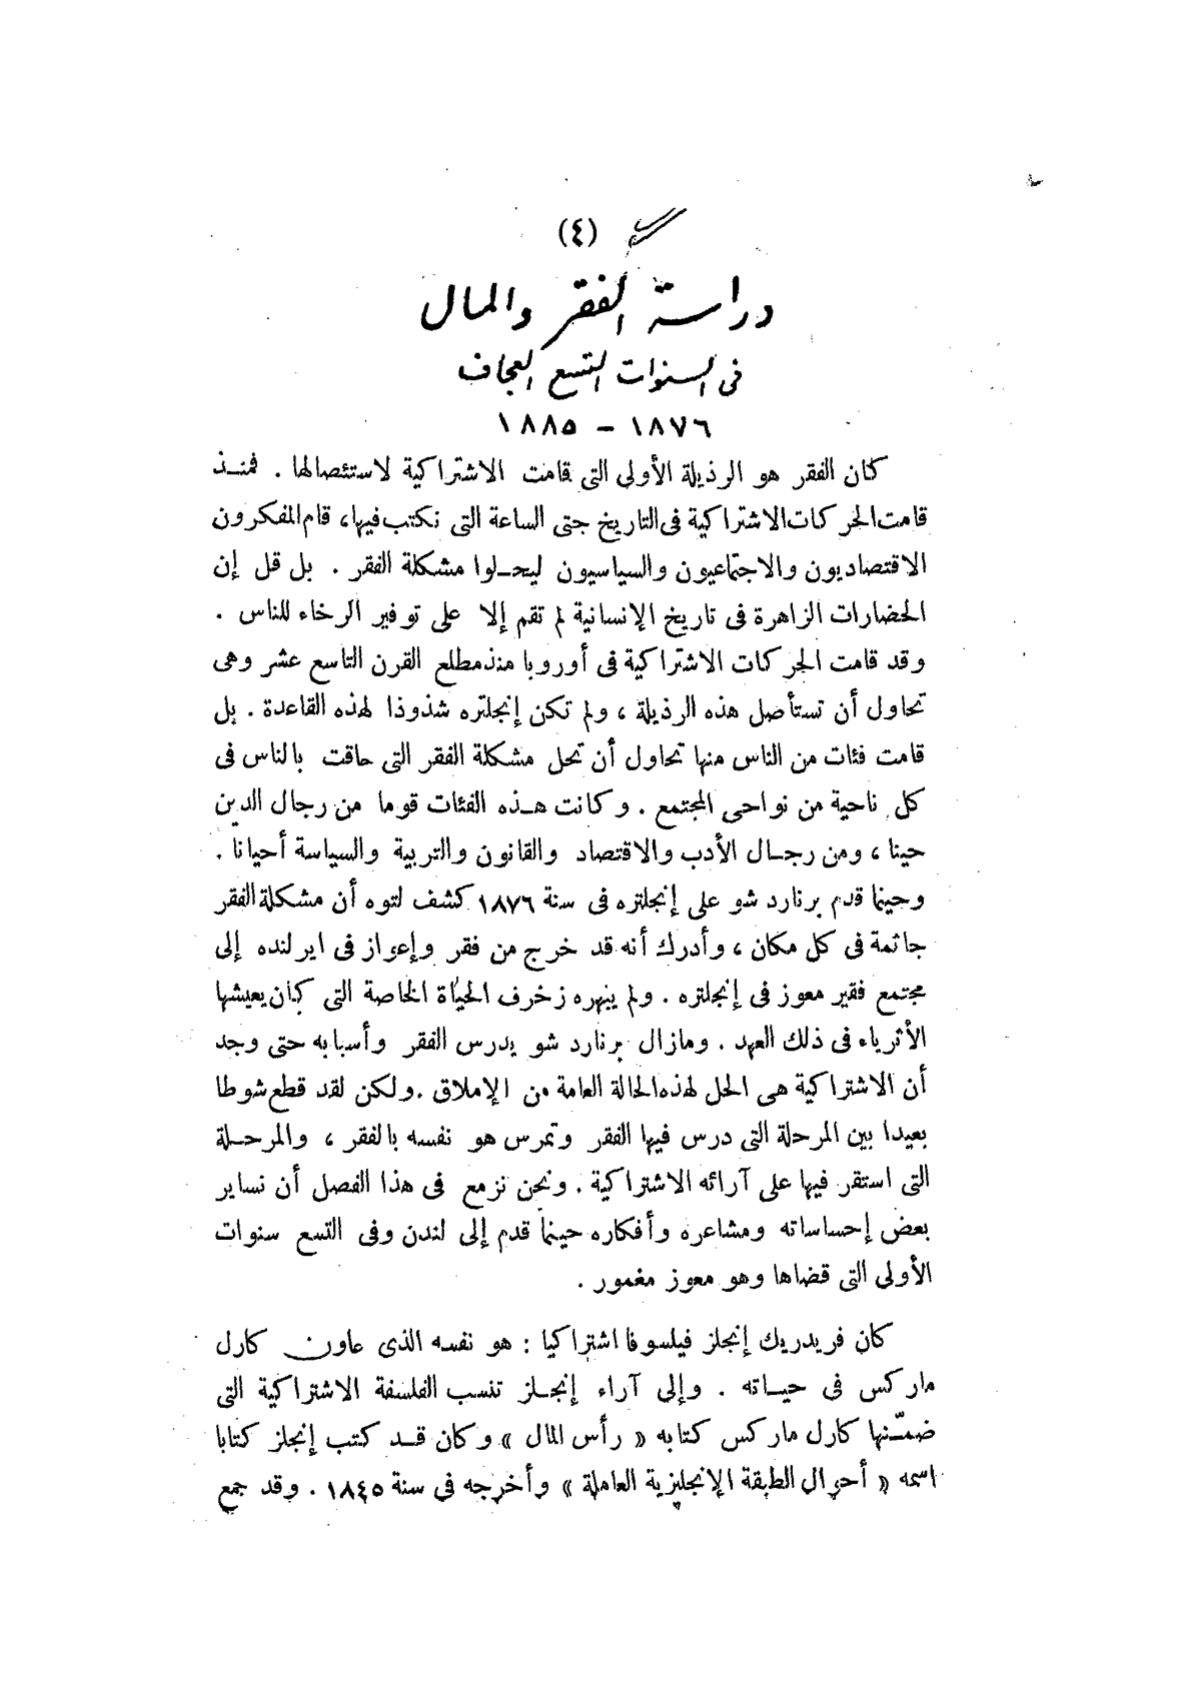 (٤)
دراسة الفقر والمال
فى السنوات التسع العجاف
١٨٧٦ – ١٨٨٥
كان الفقر هو الرذيلة الأولى التى قامت الاشتراكية لاستئصالها . فمنذ
قامت الحركات الاشتراكية فى التاريخ حتى الساعة التى نكتب فيها، قام المفكرون
الاقتصاديون والاجتماعيون والسياسيون ليحلوا مشكلة الفقر . بل قل إن
الحضارات الزاهرة فى تاريخ الإنسانية لم تقم إلا على توفير الرخاء للناس .
وقد قامت الحركات الاشتراكية فى أوروبا منذ مطلع القرن التاسع عشر وهى
تحاول أن تستأصل هذه الرذيلة ، ولم تكن إنجلتره شذوذا لهذه القاعدة . بل
قامت فئات من الناس منها تحاول أن تحل مشكلة الفقر التى حاقت بالناس فى
كل ناحية من نواحى المجتمع . وكانت هذه الفئات قوما من رجال الدين
حينا ، ومن رجال الأدب والاقتصاد والقانون والتربية والسياسة أحيانا .
وحينما قدم برنارد شو على إنجلتره فى سنة ١٨٧٦ كشف لتوه أن مشكلة الفقر
جاثمة فى كل مكان ، وأدرك أنه قد خرج من فقر وإعواز فى ايرلنده إلى
مجتمع فقير معوز فى إنجلتره . ولم ينهره زخرف الحياة الخاصة التى كان يعيشها
الأثرياء فى ذلك العهد . ومازال برنارد شو يدرس الفقر وأسبابه حتى وجد
أن الاشتراكية هى الحل لهذه الحالة العامة من الإملاق . ولكن لقد قطع شوطا
بعيدا بين المرحلة التى درس فيها الفقر وتمرس هو نفسه بالفقر ، والمرحلة
التى استقر فيها على آرائه الاشتراكية . ونحن نزمع فى هذا الفصل أن نساير
بعض إحساساته ومشاعره وأفكاره حينما قدم إلى لندن وفى التسع سنوات
الأولى التى قضاها وهو معوز مغمور .
كان فريدريك إنجلز فيلسوفا اشتراكيا : هو نفسه الذى عاون كارل
ماركس فى حياته . وإلى آراء إنجلز تنسب الفلسفة الاشتراكية التى
ضمّنها كارل ماركس كتابه « رأس المال » وكان قد كتب إنجلز كتابا
اسمه « أحوال الطبقة الإنجليزية العاملة » وأخرجه فى سنة ١٨٤٥ . وقد جمع